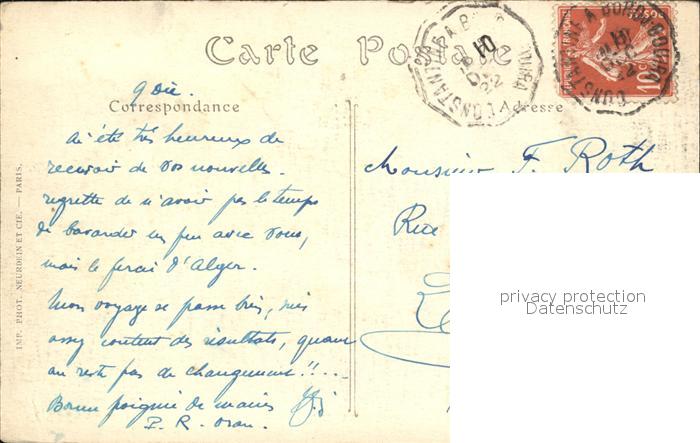 Carte Postale
9 Dec.
Correspondance
Adresse
Ai été très heureux de
recevoir de vos nouvelles.
regrette de n'avoir pas le temps
de bavarder un peu avec vous,
mais le ferai d'Alger.
Mon voyage se passe bien, suis
assez content des résultats, quant
au reste pas de changement !!...
Bonne poignée de mains
P. R. Oran.
Monsieur F. Roth
Rue
IMP. PHOT. NEURDEIN ET CIE. — PARIS.
CONSTANTINE A
CONSTANTINE A
10
privacy protection
Datenschutz